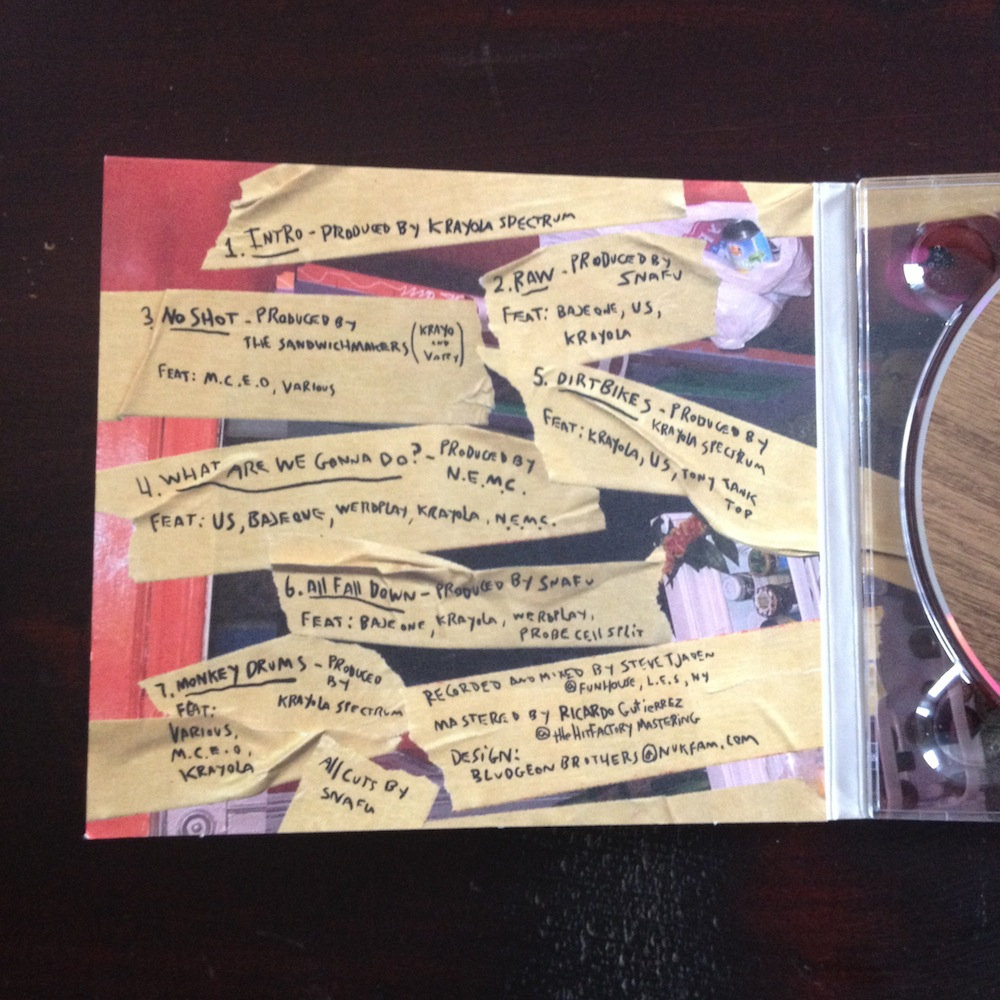 1. INTRO - PRODUCED BY KRAYOLA SPECTRUM
2. RAW - PRODUCED BY
SNAFU
FEAT: BASEONE, US,
KRAYOLA
3. NO SHOT - PRODUCED BY
THE SANDWICHMAKERS (KRAYO
AND
VARRY)
FEAT: M.C.E.O, VARIOUS
4. WHAT ARE WE GONNA DO? - PRODUCED BY
N.E.M.C.
FEAT: US, BASEONE, WERDPLAY, KRAYOLA, N.E.M.C.
5. DIRTBIKES - PRODUCED BY
KRAYOLA SPECTRUM
FEAT: KRAYOLA, US, TONY TANK
TOP
6. All Fall Down - PRODUCED BY SNAFU
FEAT: BASEONE, KRAYOLA, WERDPLAY,
PROBE CELL SPLIT
7. MONKEY DRUMS - PRODUCED
BY
KRAYOLA SPECTRUM
FEAT:
VARIOUS,
M.C.E.O,
KRAYOLA
All CUTS BY
SNAFU
RECORDED AND MIXED BY STEVE TJADEN
@FUNHOUSE, L.E.S, NY
MASTERED BY RICARDO GUTIERREZ
@ the HIT FACTORY MASTERING
DESIGN:
BLUDGEON BROTHERS@NVKFAM.COM